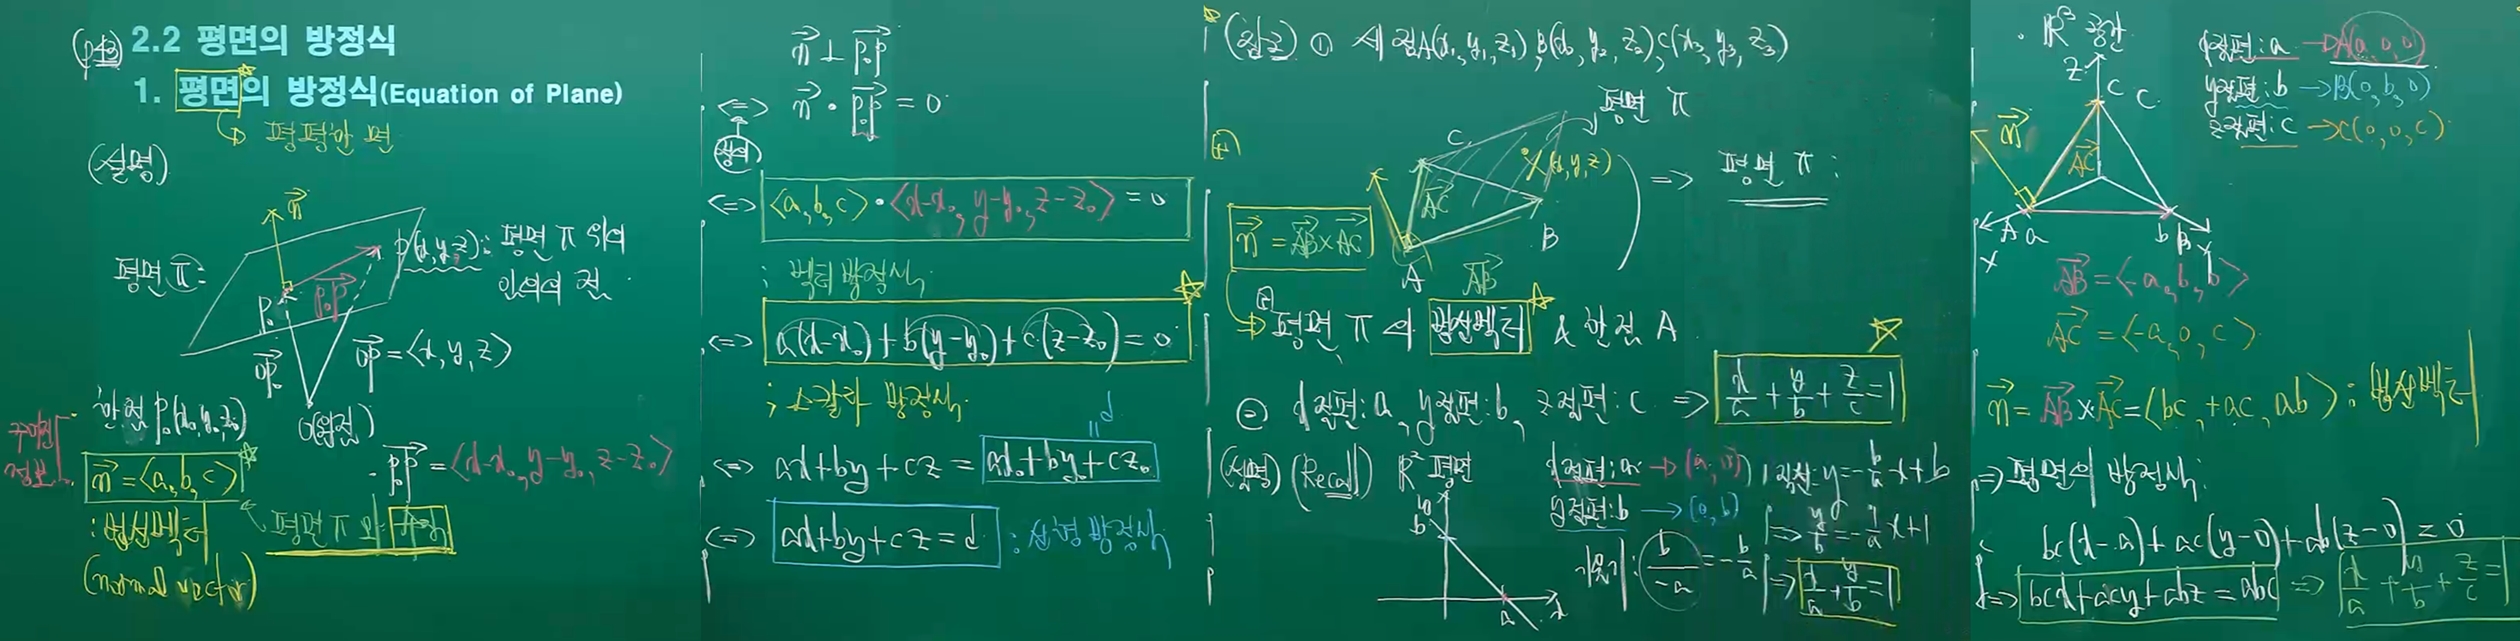 (p43) 2.2 평면의 방정식
1. 평면의 방정식(Equation of Plane)
평평한 면
(설명)
n⃗
평면 π:
P(x,y,z): 평면 π 위의
임의의 점
P₀
P₀P⃗
OP₀⃗
OP⃗ = <x, y, z>
O(원점)
한 점 P₀(x₀,y₀,z₀)
주어진
정보
n⃗ = <a, b, c>
: 법선벡터
(normal vector)
평면 π 의
P₀P⃗ = <x-x₀, y-y₀, z-z₀>
n⃗ ⊥ P₀P⃗
<=> n⃗ • P₀P⃗ = 0
<=> <a, b, c> • <x-x₀, y-y₀, z-z₀> = 0
; 벡터 방정식
<=> a(x-x₀)+b(y-y₀)+c(z-z₀)=0
; 스칼라 방정식
<=> ax+by+cz = ax₀+by₀+cz₀
d
<=> ax+by+cz=d : 선형 방정식
(참고) ① 세 점 A(x₁, y₁, z₁), B(x₂, y₂, z₂), C(x₃, y₃, z₃)
평면 π
C
X(x,y,z)
AC⃗
B
A
AB⃗
n⃗ = AB⃗×AC⃗
=> 평면 π :
평면 π 의 법선벡터 & 한 점 A
② x절편: a, y절편: b, z절편: c => x/a + y/b + z/c = 1
(설명) (Recall) R² 평면
y
b
a
x
x절편: a → (a, 0)
y절편: b → (0, b)
기울기: b/-a = -b/a
직선: y = -b/a x + b
=> y/b = -1/a x + 1
=> x/a + y/b = 1
R³ 공간
x절편: a → A(a, 0, 0)
y절편: b → B(0, b, 0)
z절편: c → C(0, 0, c)
z
c C
n⃗
AC⃗
A a
b B
x
y
AB⃗ = <-a, b, b>
AC⃗ = <-a, 0, c>
n⃗ = AB⃗×AC⃗ = <bc, +ac, ab> : 법선벡터
=> 평면의 방정식:
bc(x-a)+ac(y-0)+ab(z-0) = 0
<=> bcx+acy+abz = abc => x/a + y/b + z/c = 1